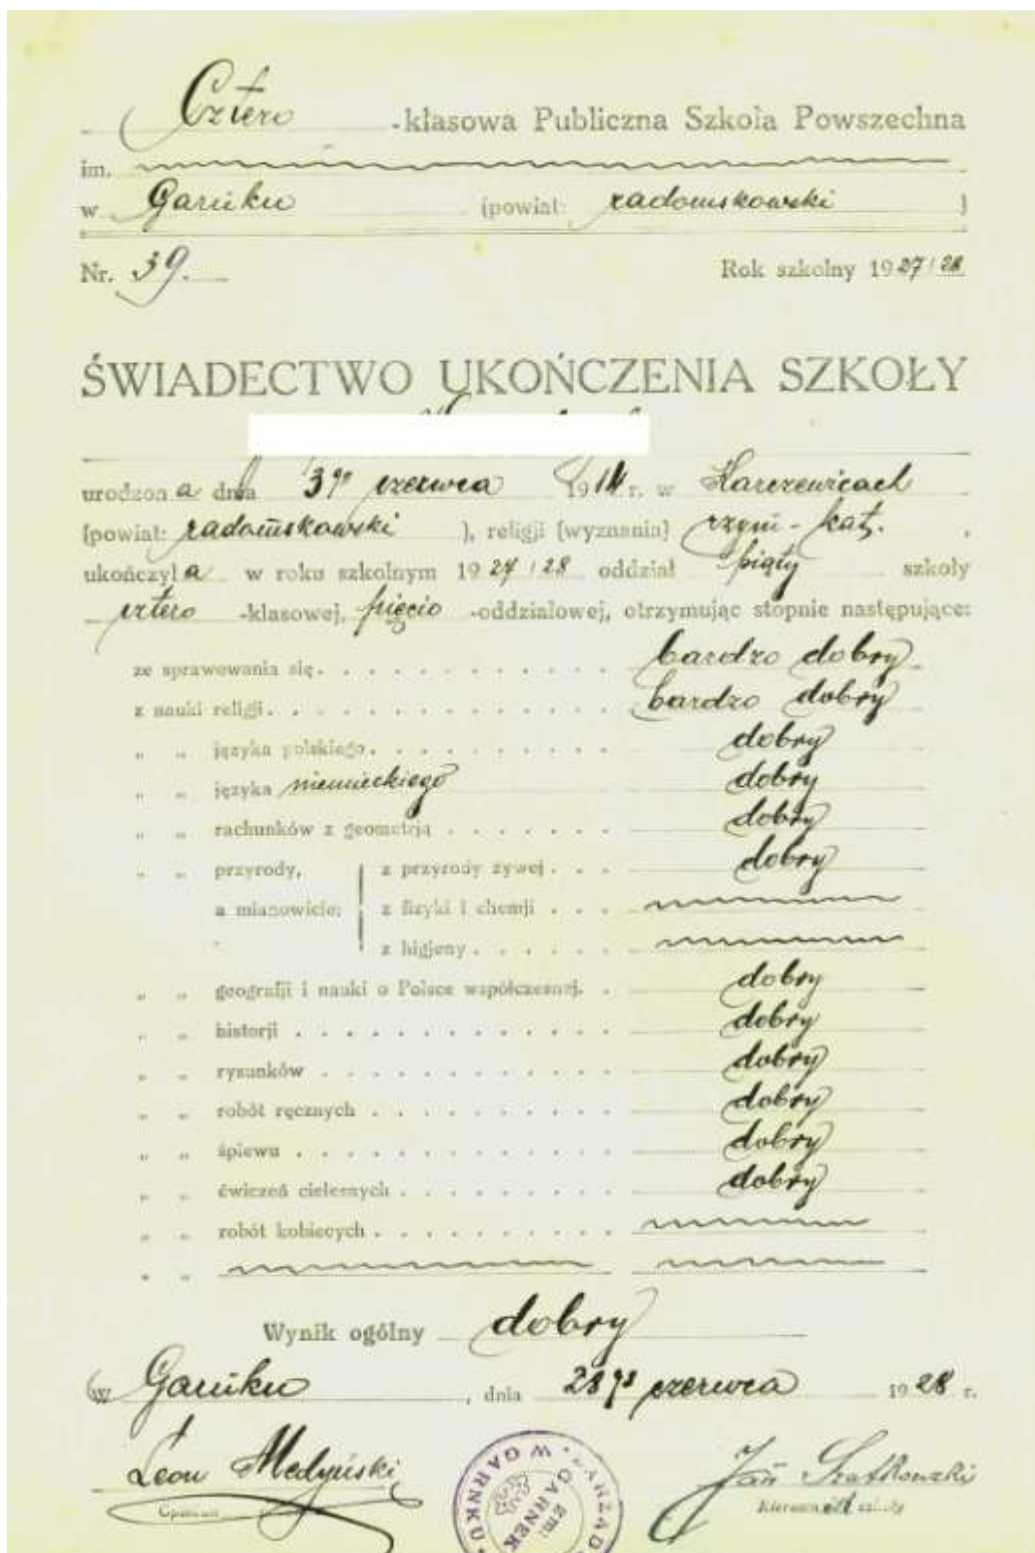 Cztero -klasowa Publiczna Szkoła Powszechna
im.
w Garnku (powiat: radomskowski )
Nr. 39. Rok szkolny 1927/28
ŚWIADECTWO UKOŃCZENIA SZKOŁY
urodzona dnia 3go czerwca 1914 r. w Karczewicach
(powiat: radomskowski ), religji (wyznania) rzym-kat.,
ukończyła w roku szkolnym 1927/28 oddział piąty szkoły
cztero -klasowej, pięcio -oddziałowej, otrzymując stopnie następujące:
ze sprawowania się. bardzo dobry
z nauki religji. bardzo dobry
" " języka polskiego. dobry
" " języka niemieckiego dobry
" " rachunków z geometrją dobry
" " przyrody, z przyrody żywej dobry
a mianowicie: z fizyki i chemji
z higjeny
" " geografji i nauki o Polsce współczesnej. dobry
" " historji dobry
" " rysunków dobry
" " robót ręcznych dobry
" " śpiewu dobry
" " ćwiczeń cielesnych dobry
" " robót kobiecych
" "
Wynik ogólny dobry
w Garnku, dnia 28go czerwca 1928 r.
Leon Medyński Jan
Opiekun szkoły
W GARNKU
GARNEK